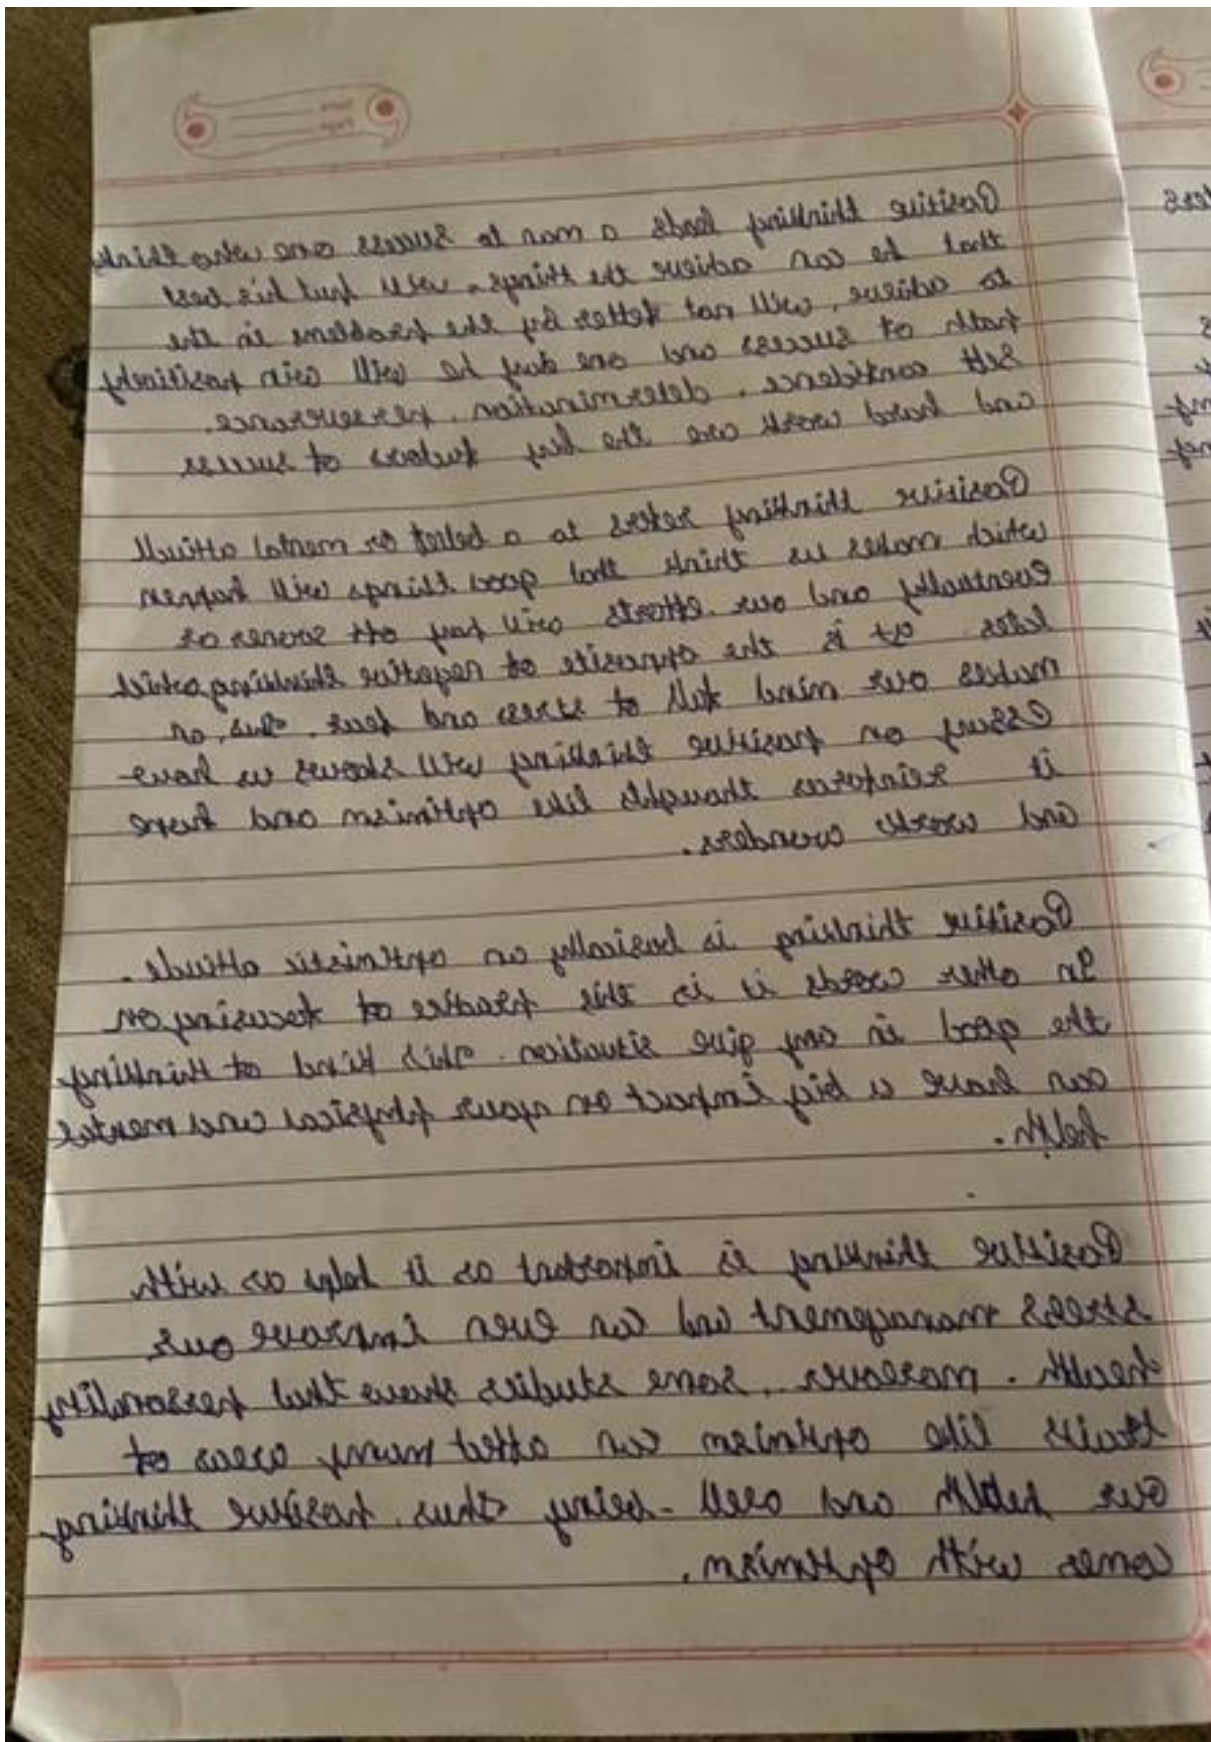 Date
Page
Positive thinking leads a man to success one who think
that he can achieve the things, will put his best
to achieve, will not fetter by the problems in the
path of success and one day he will win positively
Self confidence, determination, perseverance,
and hard work are the key factors of success
Positive thinking refers to a belief or mental
which makes us think that good things will happen
eventually and our efforts will pay off sooner or
It is the opposite of negative thinking which
makes our mind full of stress and fear. Thus, an
Essay on positive thinking will shows us how
it reinforces thoughts like optimism and hope
and works wonders.
Positive thinking is basically an optimistic attitude.
In other words it is this practice of focusing on
the good in any give situation. This kind of thinking
can have a big impact on your physical and mental
helth.
Positive thinking is important as it helps as with
stress management and can even improve our
health. moreover, some studies shows that personality
traits like optimism can affect many areas of
our helth and well-being thus, positive thinking
comes with optimism.